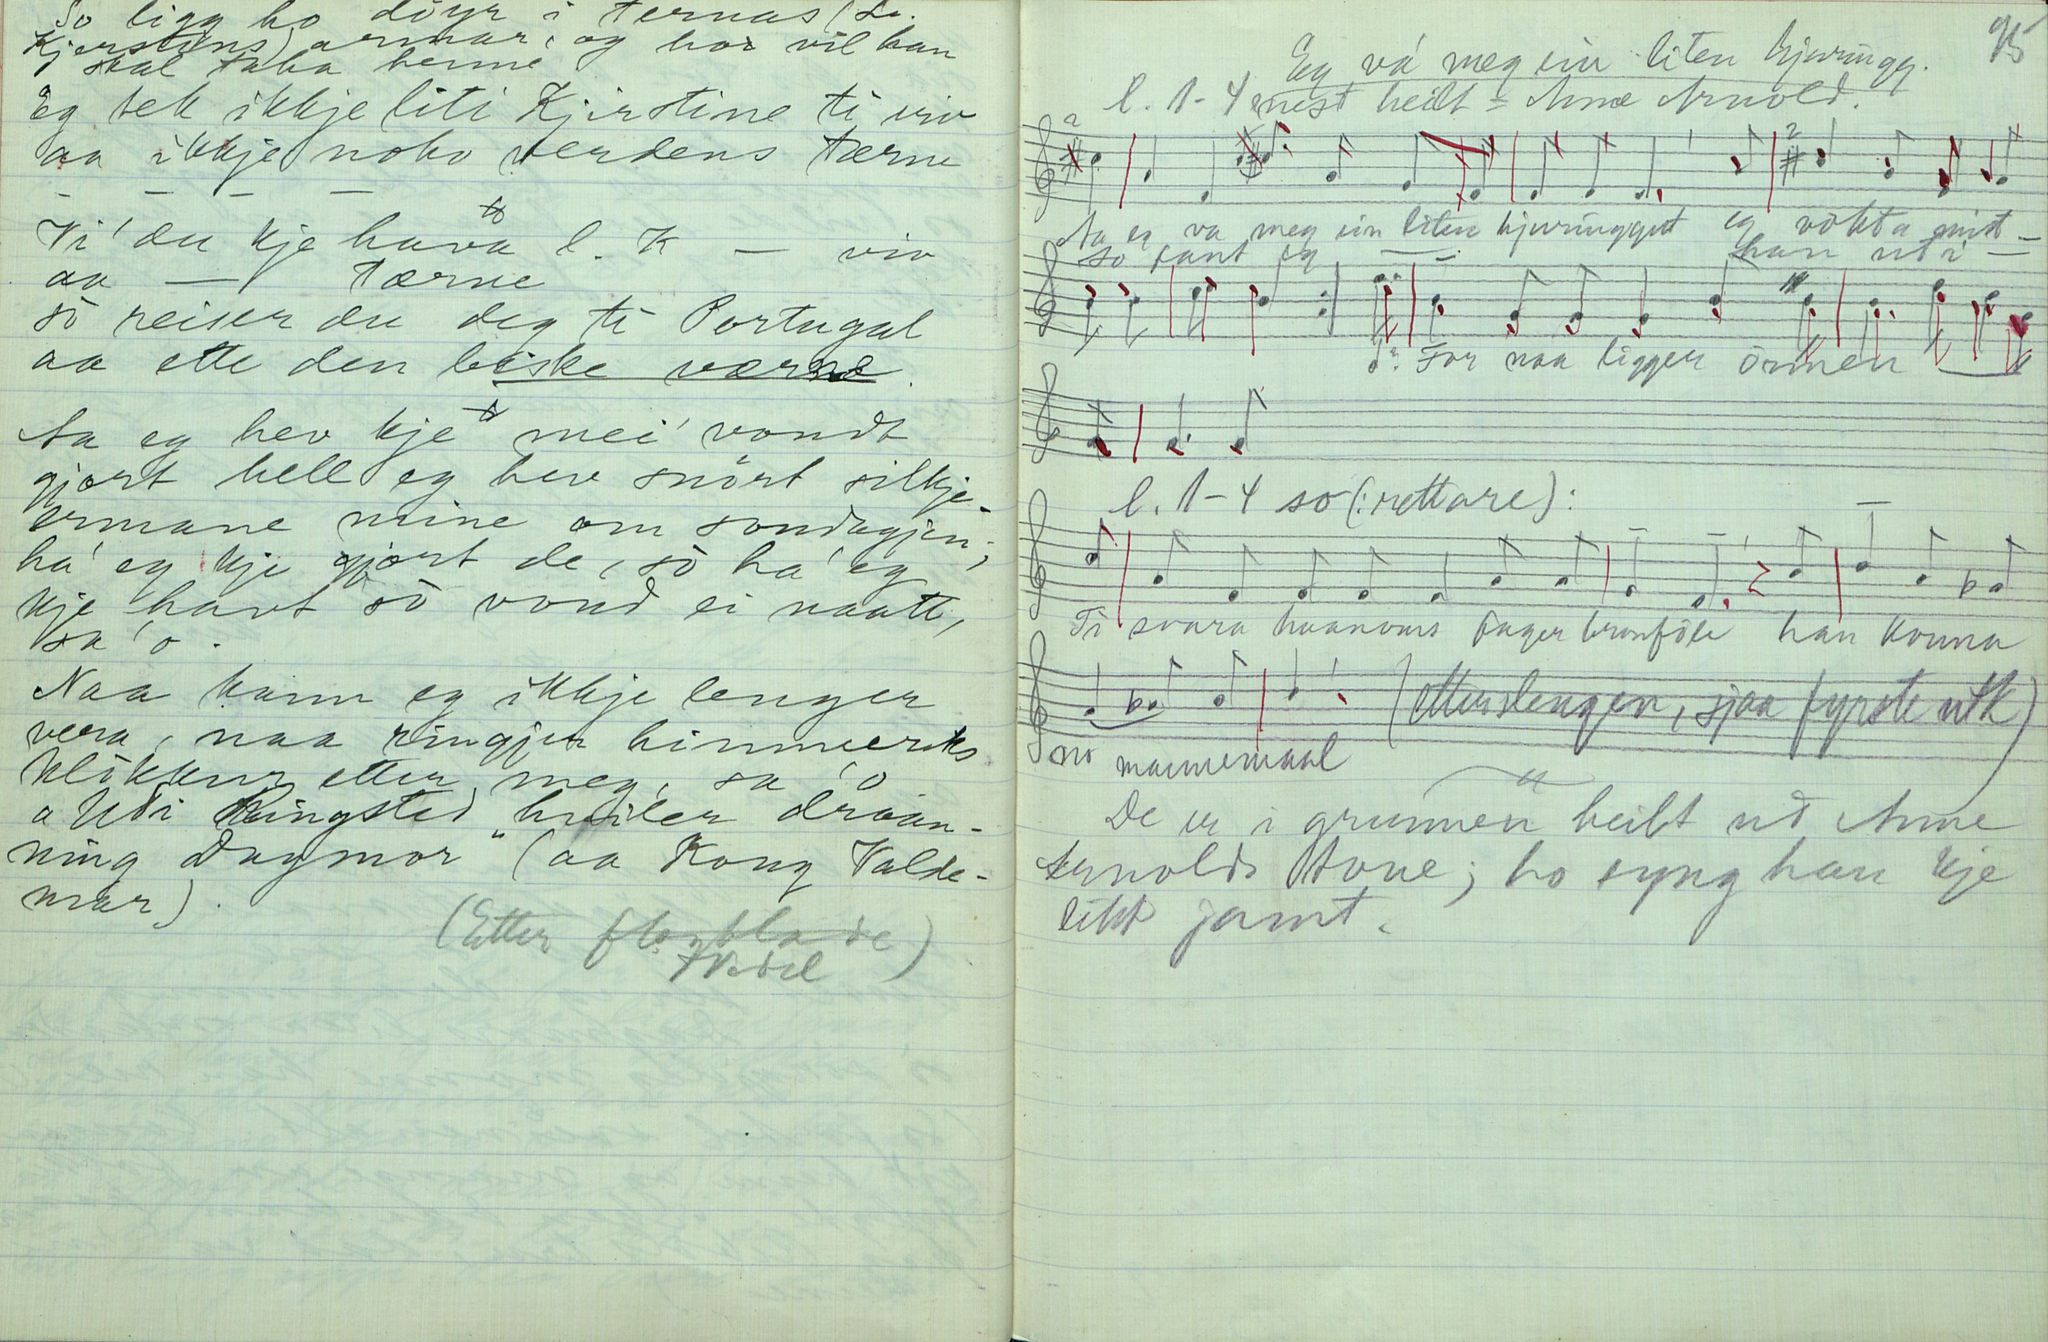 So ligg ho döyr i ternas (Li.
Kjerstins) armar, og hor vil han
skal taka henne
Eg tek ikkje liti Kjirstine ti viv
aa ikkje noko verdens tærne
— — — —
Vi' du kje hava l. K — viv
aa — tærne
so reiser du deg ti Portugal
aa ette den beiske værne.
Aa eg hev kje mei' vondt
gjort hell eg hev snört silkje-
ermane mine om sondagjen;
ha' eg kje gjort de, so ha' eg
kje havt so vond ei naatt,
sa 'o.
Naa kann eg ikkje lenger
vera, naa ringjer himmeriks
klokkur etter meg, sa 'o
a Uti Ringsted hviler dronn-
ning Dagmor" (aa Kong Valde-
mar).
(Etter flogblade)
Vedel
95
Eg vá meg ein liten hjuringg.
l. 1-4 mest heilt = Anne Arnold.
Aa eg va meg ein liten hjuringgut eg vökta mit —
so fant eg — — han uti —
d: For naa ligger ormen
l. 1-4 so (: rettare):
Ti svara haanoms fager bronföle han kunna
no mannemaal
(etterslengen, sjaa fyrste utk)
De er i grunnen heilt ut Anne
Arnolds tone; ho syng han kje
likt jamt.